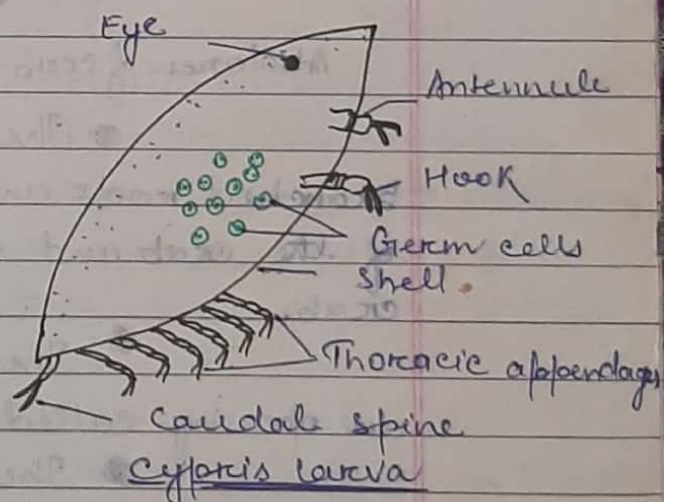 Eye
Antennule
Hook
Germ cells
Shell.
Thoracic appendages
Caudal spine
Cypris larva